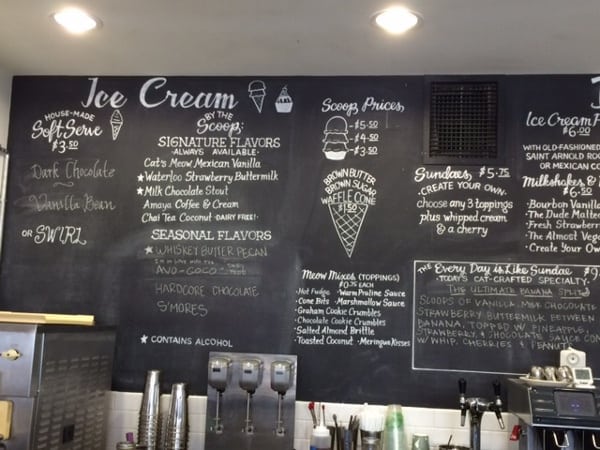 Ice Cream
HOUSE-MADE
Soft Serve
$3.50
Dark Chocolate
Vanilla Bean
OR SWIRL
BY THE
Scoop:
SIGNATURE FLAVORS
- ALWAYS AVAILABLE -
Cat's Meow Mexican Vanilla
★Waterloo Strawberry Buttermilk
★Milk Chocolate Stout
Amaya Coffee & Cream
Chai Tea Coconut - DAIRY FREE! -
SEASONAL FLAVORS
★WHISKEY BUTTER PECAN
I'm in Love with the
AVO-COCO
HARDCORE CHOCOLATE
S'MORES
★ CONTAINS ALCOHOL
Scoop Prices
-$5.50
-$4.50
-$3.50
BROWN BUTTER
BROWN SUGAR
WAFFLE CONE
$1.50
Meow Mixes (TOPPINGS)
$0.75 EACH
· Hot Fudge · Warm Praline Sauce
· Cone Bits · Marshmallow Sauce
· Graham Cookie Crumbles
· Chocolate Cookie Crumbles
· Salted Almond Brittle
· Toasted Coconut · Meringue Kisses
Sundaes $5.75
- CREATE YOUR OWN -
choose any 3 toppings
plus whipped cream
& a cherry
THE Every Day is Like Sundae $9
- TODAY'S CAT-CRAFTED SPECIALTY -
THE ULTIMATE BANANA SPLIT!
SLOOPS OF VANILLA, MILK CHOCOLATE
STRAWBERRY BUTTERMILK BETWEEN
BANANA, TOPPED W/ PINEAPPLE,
STRAWBERRY, & CHOCOLATE SAUCE
W/ WHIP, CHERRIES & PEANUTS
Ice Cream F
$6.00
WITH OLD-FASHIONED
SAINT ARNOLD ROO
OR MEXICAN CO
Milkshakes &
$6.50
· Bourbon Vanilla
· The Dude Malted
· Fresh Strawberry
· The Almost Vega
· Create Your Own